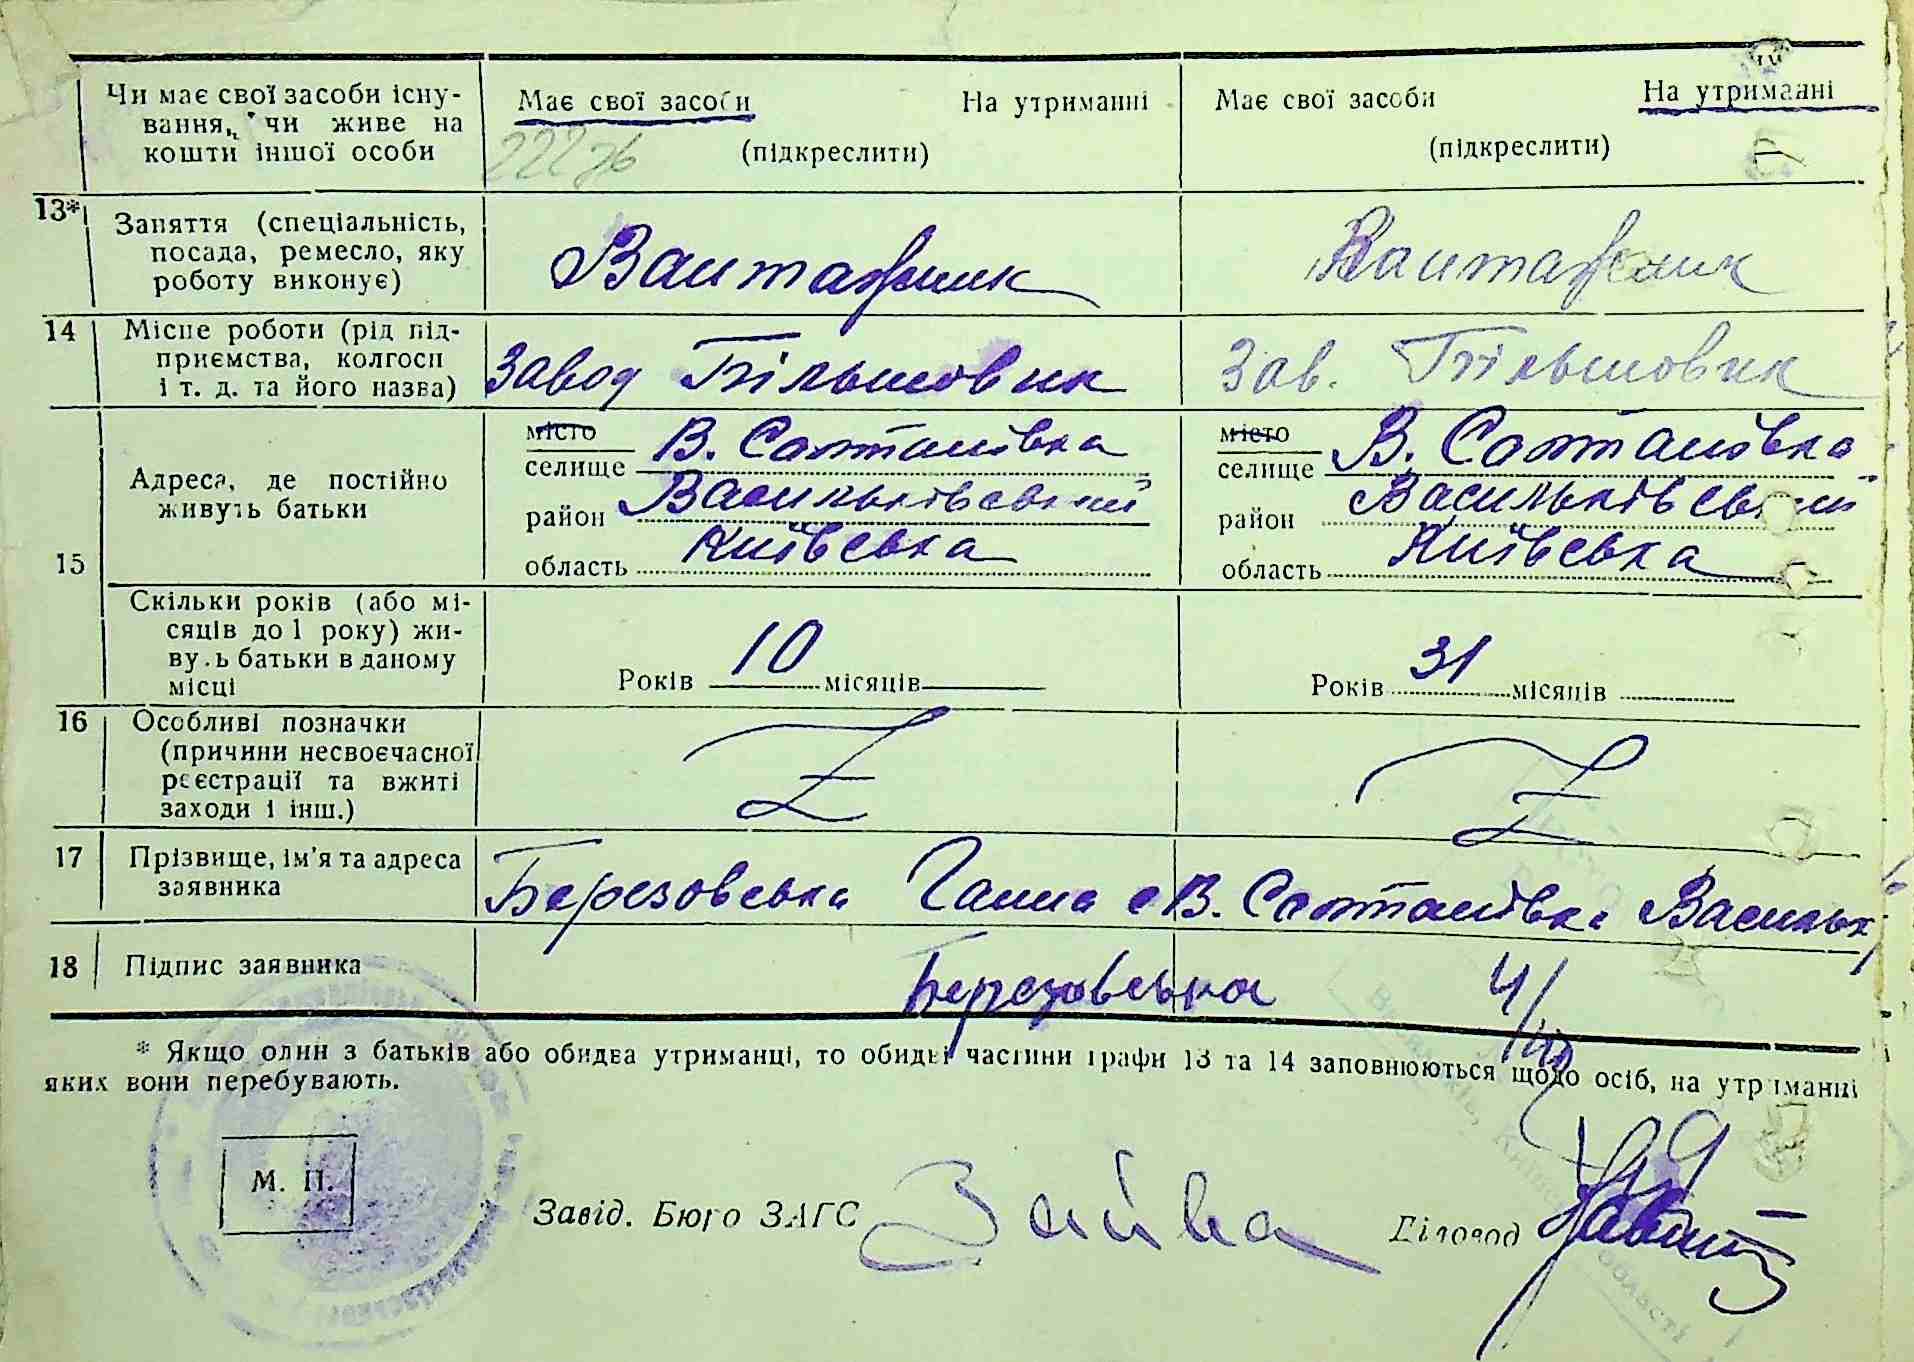 Чи має свої засоби існу-
вання, чи живе на
кошти іншої особи
Має свої засоби На утриманні
(підкреслити)
Має свої засоби На утриманні
(підкреслити)
22276
13*
Заняття (спеціальність,
посада, ремесло, яку
роботу виконує)
Вантажник
Вантажник
14
Місце роботи (рід під-
приємства, колгосп
і т. д. та його назва)
Завод Більшовик
Зав. Більшовик
15
Адреса, де постійно
живуть батьки
місто
селище В. Солтанівка
район Васильківський
область Київська
місто
селище В. Солтанівка
район Васильківський
область Київська
Скільки років (або мі-
сяців до 1 року) жи-
вуть батьки в даному
місці
Років 10 місяців
Років 31 місяців
16
Особливі позначки
(причини несвоєчасної
реєстрації та вжиті
заходи і інш.)
Z
Z
17
Прізвище, ім'я та адреса
заявника
Березовська Ганна с В. Солтанівка Васильк
18
Підпис заявника
Березовська
* Якщо один з батьків або обидва утриманці, то обидві частини графи 13 та 14 заповнюються щодо осіб, на утриманні
яких вони перебувають.
М. П.
Завід. Бюро ЗАГС Зайва
Діловод
області